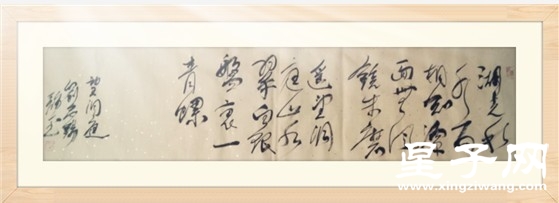 湖光秋
月两
相和潭
面無風
镜未磨
遥望洞
庭山水
翠白银
盤裏一
青螺
望洞庭
劉禹錫
星子网
www.xingziwang.com